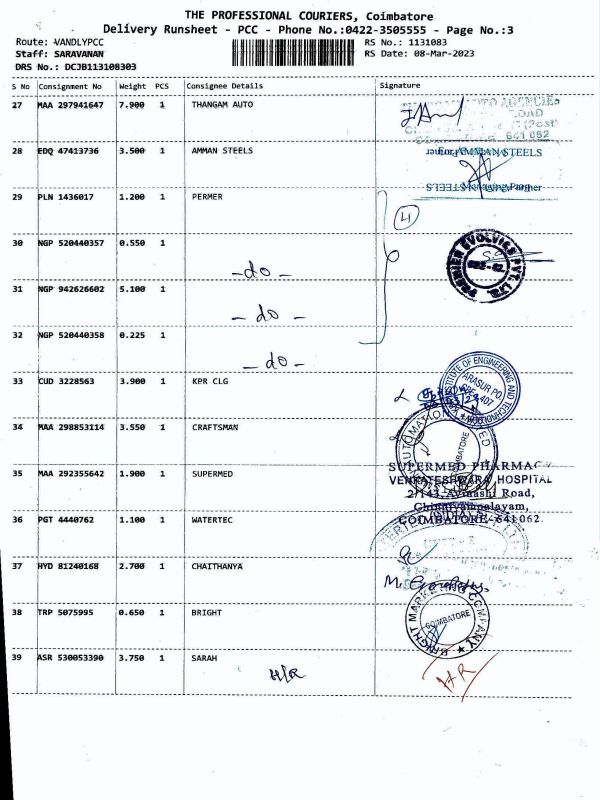 THE PROFESSIONAL COURIERS, Coimbatore
Delivery Runsheet - PCC - Phone No.:0422-3505555 - Page No.:3
Route: VANDLYPCC
RS No.: 1131083
Staff: SARAVANAN
RS Date: 08-Mar-2023
DRS No.: DCJB113108303
S No Consignment No Weight PCS Consignee Details Signature
27 MAA 297941647 7.900 1 THANGAM AUTO
641 062
28 EDQ 47413736 3.500 1 AMMAN STEELS
AMMAN STEELS
29 PLN 1436017 1.200 1 PERMER
4
30 NGP 520440357 0.550 1
-do-
PREMIER EVOLVICS PVT. LTD.
31 NGP 942626602 5.100 1
-do-
32 NGP 520440358 0.225 1
-do-
33 CUD 3228563 3.900 1 KPR CLG
INSTITUTE OF ENGINEERING AND
ARASUR PO.
407
34 MAA 298853114 3.550 1 CRAFTSMAN
AUTOMATION
35 MAA 292355642 1.900 1 SUPERMED
SUPERMED PHARMACY
VENKATESHWARA HOSPITAL
2/143, Avinashi Road,
Chinniyampalayam,
COIMBATORE-641062.
36 PGT 4440762 1.100 1 WATERTEC
37 HYD 81240168 2.700 1 CHAITHANYA
38 TRP 5075995 0.650 1 BRIGHT
BRIGHT MARKETING COMPANY
COIMBATORE
39 ASR 530053390 3.750 1 SARAH
H/R
H/R